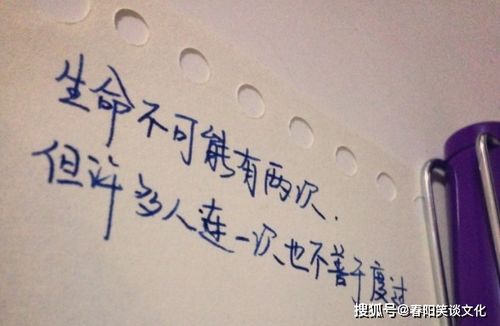 生命不可能有两次.
但许多人连一次也不善于度过
搜狐号@春阳笑谈文化